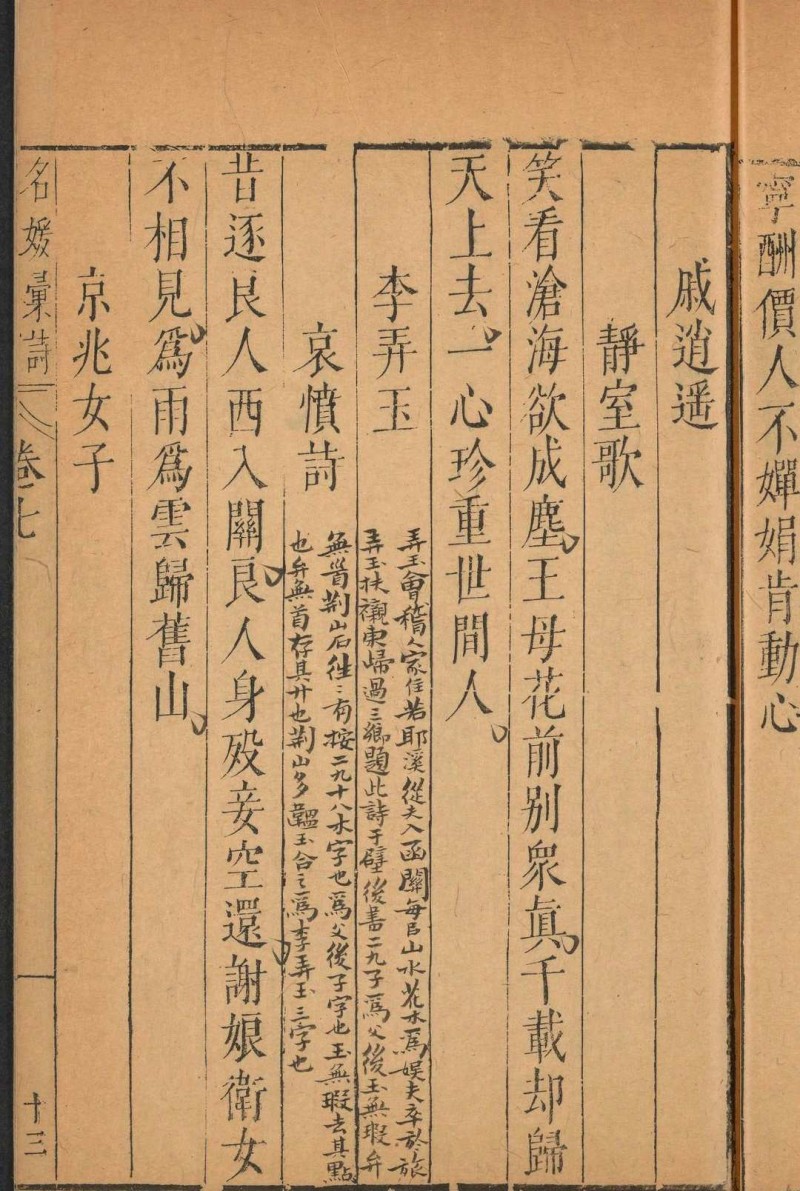 寧酬價人不嬋娟肯動心
戚逍遥
靜室歌
笑看滄海欲成塵王母花前别衆眞千載却歸
天上去一心珍重世間人
李弄玉
哀憤詩
弄玉會稽人家住若耶溪從夫入函關每以山水花木為娱夫卒於旅
弄玉扶襯東歸過三鄉題此詩于壁後書二九子為父後玉無瑕弁
無首荆山石往〻有按二九十八木字也為父後子字也玉無瑕去其點
也弁無首存其廾也荆山多韞玉合之為李弄玉三字也
昔逐良人西入關良人身殁妾空還謝娘衛女
不相見爲雨爲雲歸舊山
京兆女子
名媛彙詩
卷七
十三